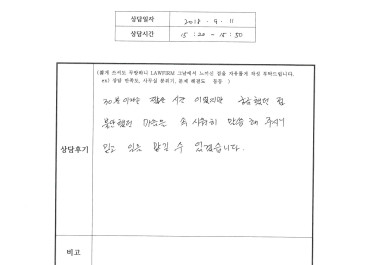 상담일자 2018. 9. 11
상담시간 15:20 - 15:50
(짧게 쓰셔도 무방하니 LAWFIRM 그날에서 느끼신 점을 자유롭게 작성 부탁드립니다.
ex) 상담 만족도, 사무실 분위기, 문제 해결도 등등 )
30분이라는 짧은 시간 이었지만 궁금했던 점
불안했던 마음을 속 시원히 말씀해 주셔서
상담후기
믿고 일을 맡길 수 있겠습니다.
비고